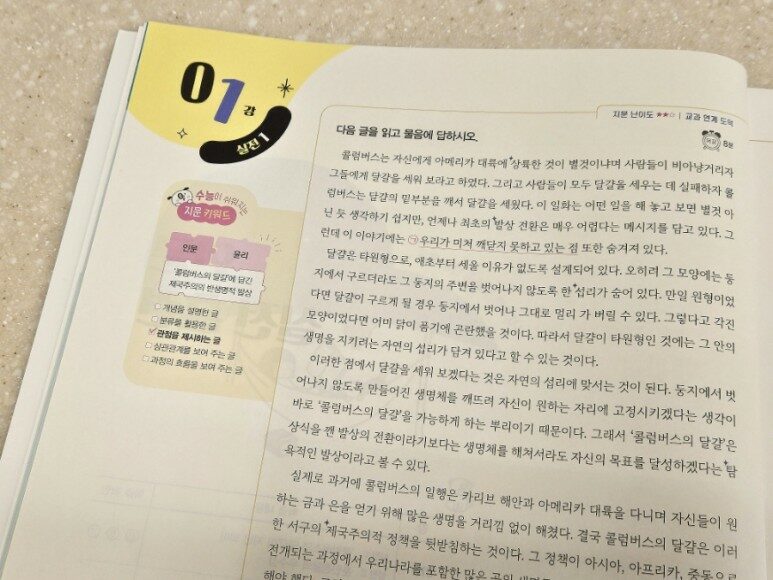 01강
실전 1
지문 난이도 ★★☆ | 교과 연계 도덕
8분
다음 글을 읽고 물음에 답하시오.
수능이 쉬워지는
지문 키워드
인문 윤리
'콜럼버스의 달걀'에 담긴
제국주의의 반생명적 발상
개념을 설명한 글
분류를 활용한 글
관점을 제시하는 글
상관관계를 보여 주는 글
과정의 흐름을 보여 주는 글
콜럼버스는 자신에게 아메리카 대륙에 상륙한 것이 별것이냐며 사람들이 비아냥거리자
그들에게 달걀을 세워 보라고 하였다. 그리고 사람들이 모두 달걀을 세우는 데 실패하자 콜
럼버스는 달걀의 밑부분을 깨서 달걀을 세웠다. 이 일화는 어떤 일을 해 놓고 보면 별것 아
닌 듯 생각하기 쉽지만, 언제나 최초의 발상 전환은 매우 어렵다는 메시지를 담고 있다. 그
런데 이 이야기에는 ㉠우리가 미처 깨닫지 못하고 있는 점 또한 숨겨져 있다.
달걀은 타원형으로, 애초부터 세울 이유가 없도록 설계되어 있다. 오히려 그 모양에는 둥
지에서 구르더라도 그 둥지의 주변을 벗어나지 않도록 한 섭리가 숨어 있다. 만일 원형이었
다면 달걀이 구르게 될 경우 둥지에서 벗어나 그대로 멀리 가 버릴 수 있다. 그렇다고 각진
모양이었다면 어미 닭이 품기에 곤란했을 것이다. 따라서 달걀이 타원형인 것에는 그 안의
생명을 지키려는 자연의 섭리가 담겨 있다고 할 수 있는 것이다.
이러한 점에서 달걀을 세워 보겠다는 것은 자연의 섭리에 맞서는 것이 된다. 둥지에서 벗
어나지 않도록 만들어진 생명체를 깨뜨려 자신이 원하는 자리에 고정시키겠다는 생각이
바로 '콜럼버스의 달걀'을 가능하게 하는 뿌리이기 때문이다. 그래서 '콜럼버스의 달걀'은
상식을 깬 발상의 전환이라기보다는 생명체를 해쳐서라도 자신의 목표를 달성하겠다는 탐
욕적인 발상이라고 볼 수 있다.
실제로 과거에 콜럼버스의 일행은 카리브 해안과 아메리카 대륙을 다니며 자신들이 원
하는 금과 은을 얻기 위해 많은 생명을 거리낌 없이 해쳤다. 결국 콜럼버스의 달걀은 이러
한 서구의 제국주의적 정책을 뒷받침하는 것이다. 그 정책이 아시아, 아프리카, 중동으로
전개되는 과정에서 우리나라를 포함한 많은 곳의